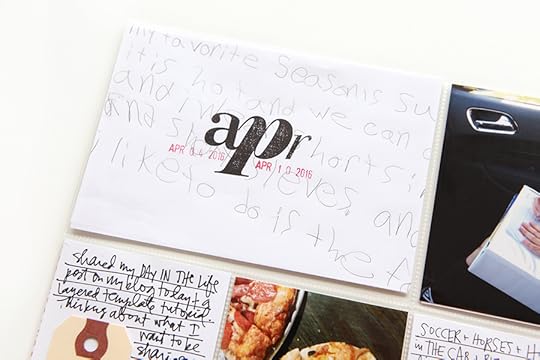 my favorite Seasons su
it is hot and we can
and
apr
APR 0 4 2016
APR 1 0 2016
and shorts in
eves, and
I like to do is the
shared my DAY IN THE Life
post on my blog today & a
layered template tutorial.
thinking about what I
want to be
sharing
SOCCER + HORSES + H
IN THE CAR